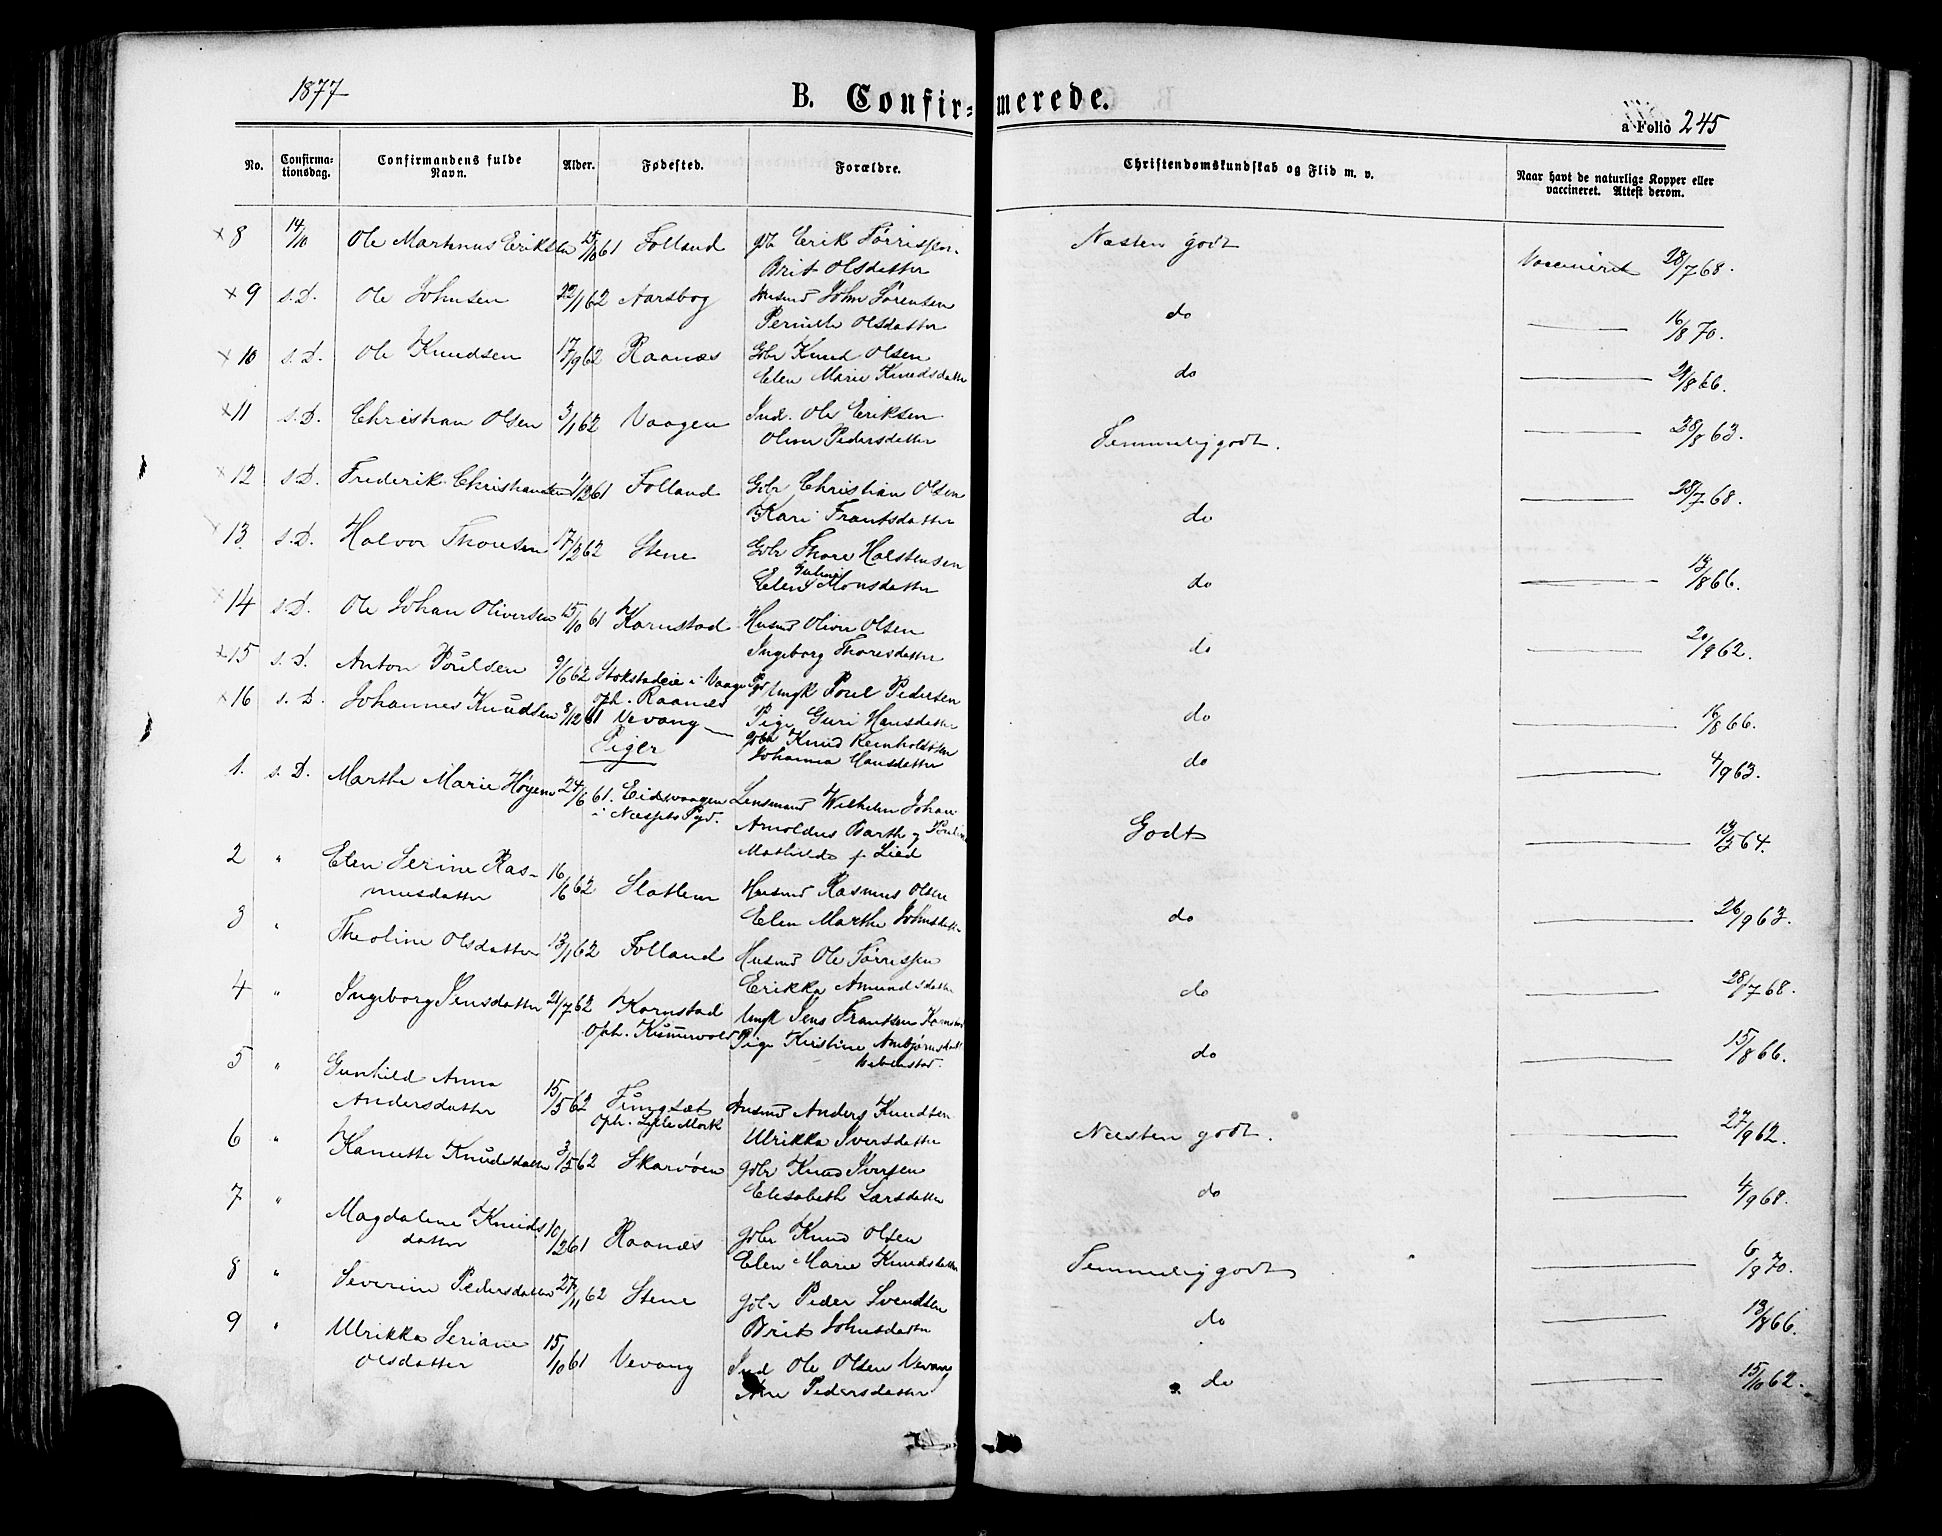 1877
B. Confirmerede.
a Folio 245
No. Confirmationsdag. Confirmandens fulde Navn. Alder. Fødested. Forældre. Christendomskundskab og Flid m. v. Naar havt de naturlige Kopper eller vaccineret. Attest derom.
x 8 14/10 Ole Martinus Eriksen 15/10 61 Folland gbr Erik Tørrissen Næsten godt Vaccineret 28/7 68.
Brit Olsdatter
x 9 s.D. Ole Johnsen 22/1 62 Aarsbog Husmd John Sørensen do 16/8 70.
Pernille Olsdatter
x 10 s.D. Ole Knudsen 17/9 62 Raanæs Gbr Knud Olsen do 21/8 66.
Elen Marie Knudsdatter
x 11 s.D. Christian Olsen 3/1 62 Vaagen Ind. Ole Eriksen Temmelig godt. 28/8 63.
Oline Pedersdatter
x 12 s.D. Frederik Christiansen 61 Folland Gbr Christian Olsen do 28/7 68.
Kari Frantsdatter
x 13. s.D. Halvor Thoresen 17/2 62 Stene Gbr Thore Halstensen do 13/8 66.
Elen Monsdatter
x 14 s.D. Ole Johan Oliversen 15/10 61 Kornstad Husmd Oliver Olsen do 20/9 62.
Ingeborg Thoresdatter
x 15 s.D. Anton Poulsen 9/6 62 Stokstadeie i Vaagø Pgd Ungk Poul Pedersen do 16/8 66.
oph. Raanæs Pige Guri Hansdatter
x 16 s.D. Johannes Knudsen 8/12 61 Vevang gbr Knud Reinholdtsen do 4/9 63.
Johanna Hansdatter
Piger
1. s.D. Marthe Marie Høyem 24/6 61. Eidsvaagen Lensmand Wilhelm Johan Godt 13/5 64.
i Næssets Pgd. Arnoldus Barth og
Mathilde f. Lied
2 " Elen Serine Ras- 16/6 62 Slatlem Husmd Rasmus Olsen do 26/9 63.
musdatter Elen Marthe Johnsdatter
3 " Theoline Olsdatter 13/1 62 Folland Husmd Ole Tørrissen do 28/7 68.
Erikka Amundsdatter
4 " Ingeborg Jensdatter 21/7 62 Kornstad Ungk Jens Frantsen Kornstad do 15/8 66.
oph. Kummervold Pige Kristine Ambjørnsdatter
5 " Gunhild Anna 15/5 62 Tungsæt Husmd Anders Knudsen Næsten godt. 27/9 62.
Andersdatter oph. Lille Mork Ulrikka Iversdatter
6 " Kanutte Knudsdatter 3/5 62 Skarvøen gbr Knud Iversen do 4/9 68.
Elisabeth Larsdatter
7 " Magdalene Knuds 10/2 61 Raanæs gbr Knud Olsen Temmelig godt 6/9 70.
datter Elen Marie Knudsdatter
8 " Severine Pedersdatter 27/11 62 Stene gbr Peder Svendsen do 13/8 66.
Brit Johnsdatter
9 " Ulrikka Seriane 15/10 61 Vevang Ind Ole Olsen Vevang do 15/10 62.
Olsdatter Ane Pedersdatter